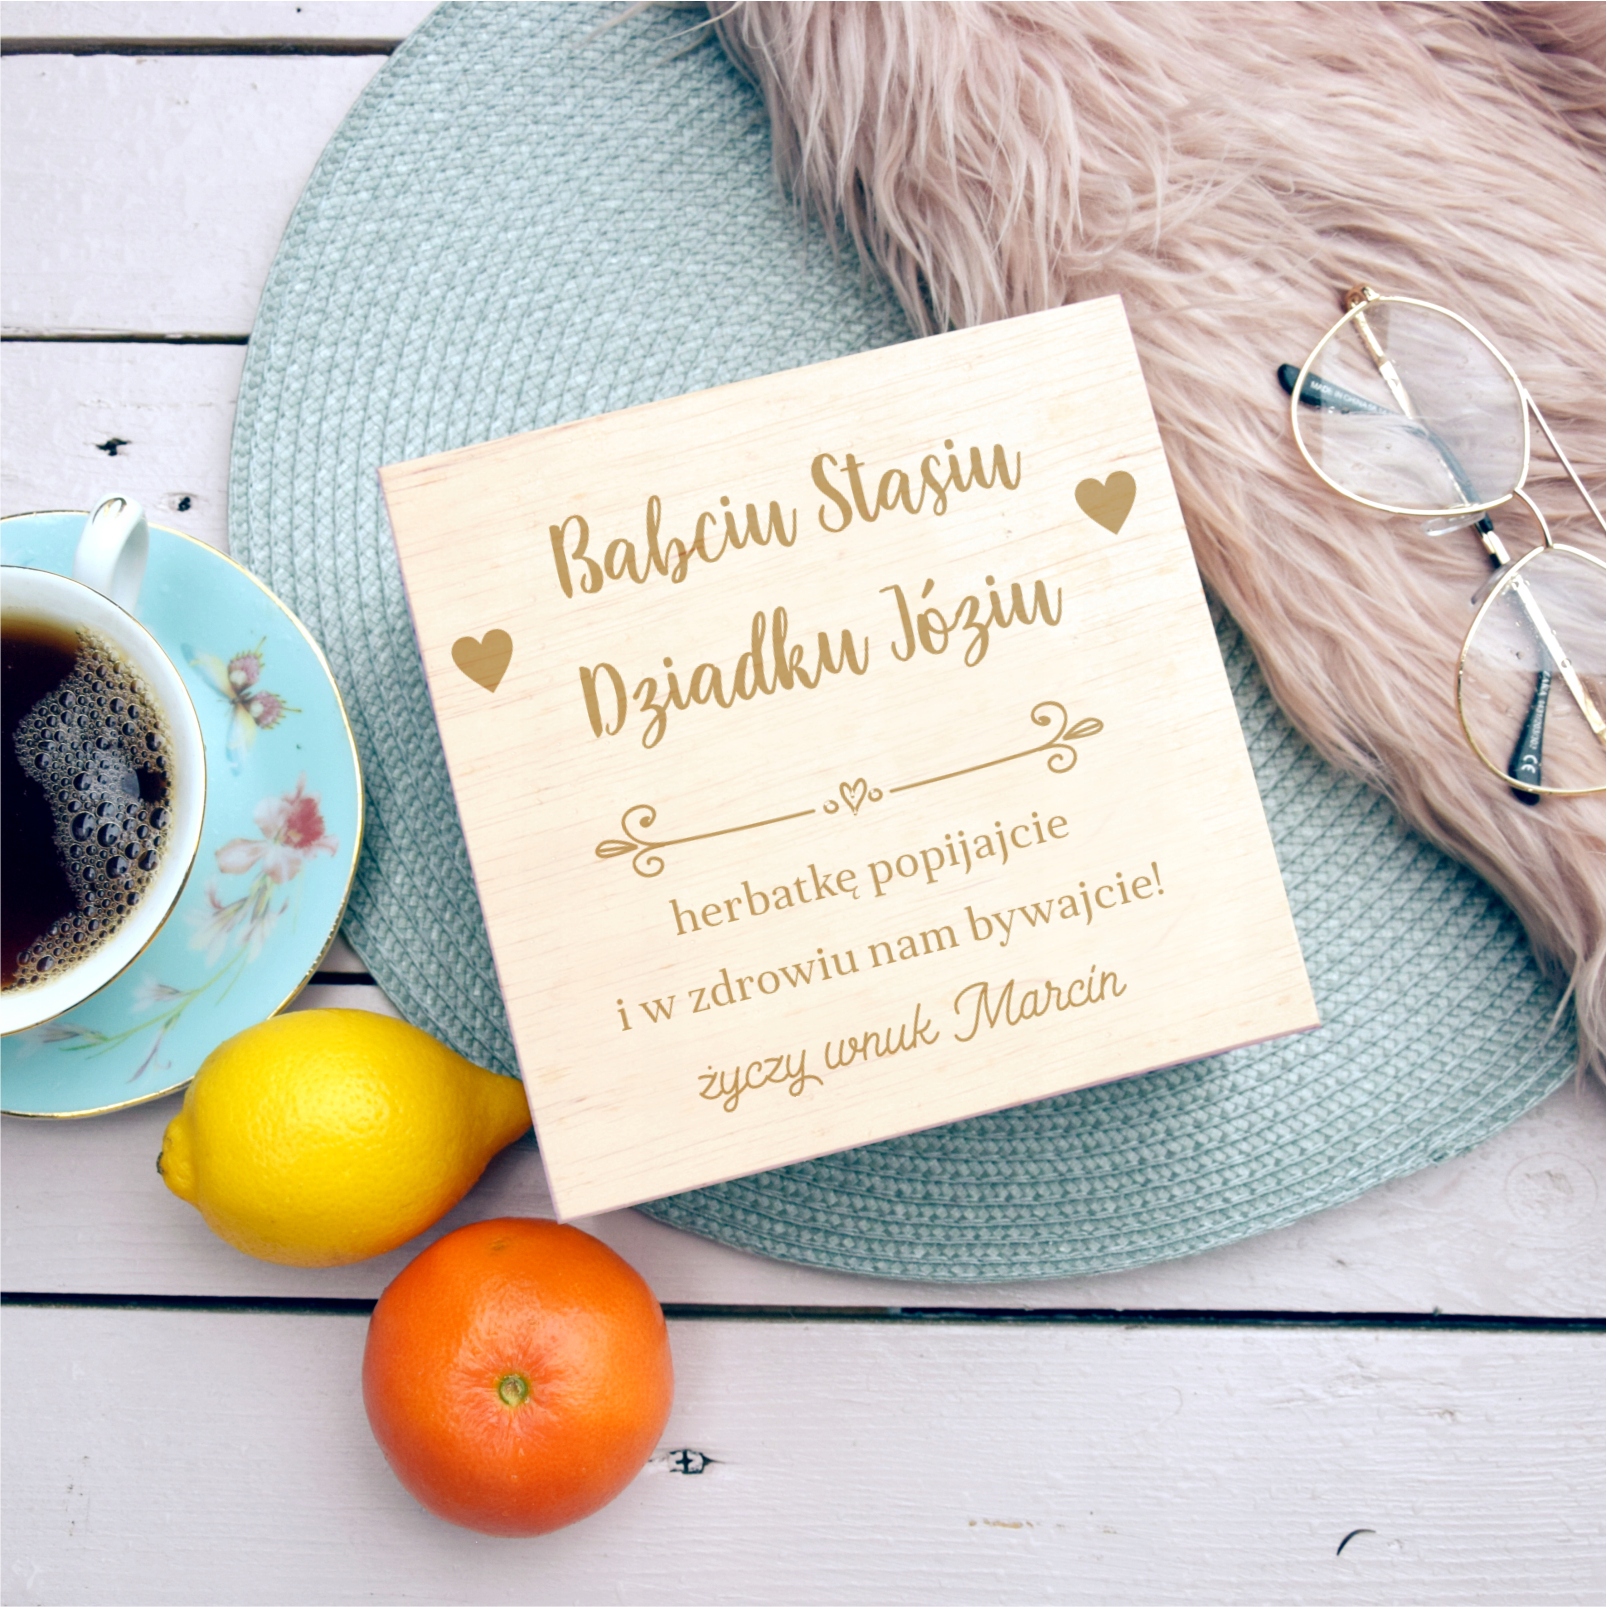 Babciu Stasiu
Dziadku Józiu
herbatkę popijajcie
i w zdrowiu nam bywajcie!
życzy wnuk Marcin
MADE IN CHINA
CE